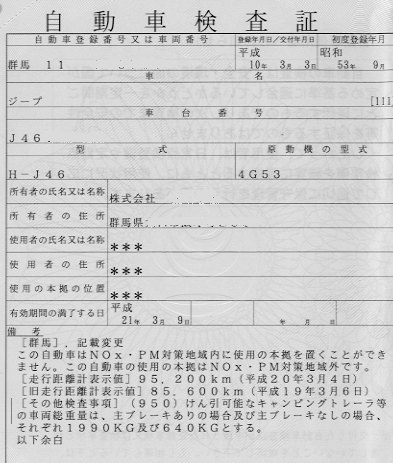 自動車検査証
自動車登録番号又は車両番号 登録年月日/交付年月日 初度登録年月
平成 昭和
群馬 11 10年 3月 3日 53年 9月
車名
ジープ [111]
車台番号
J46
型式 原動機の型式
H-J46 4G53
所有者の氏名又は名称 株式会社
所有者の住所 群馬県
使用者の氏名又は名称 ***
使用者の住所 ***
使用の本拠の位置 ***
平成
有効期間の満了する日 21年 3月 9日 年 月 日
備考
[群馬],記載変更
この自動車はNOx・PM対策地域内に使用の本拠を置くことができ
ません。この自動車の使用の本拠はNOx・PM対策地域外です。
[走行距離計表示値]95,200km(平成20年3月4日)
[旧走行距離計表示値]85,600km(平成19年3月6日)
[その他検査事項](950)けん引可能なキャンピングトレーラ等
の車両総重量は、主ブレーキありの場合及び主ブレーキなしの場合、
それぞれ1990KG及び640KGとする。
以下余白